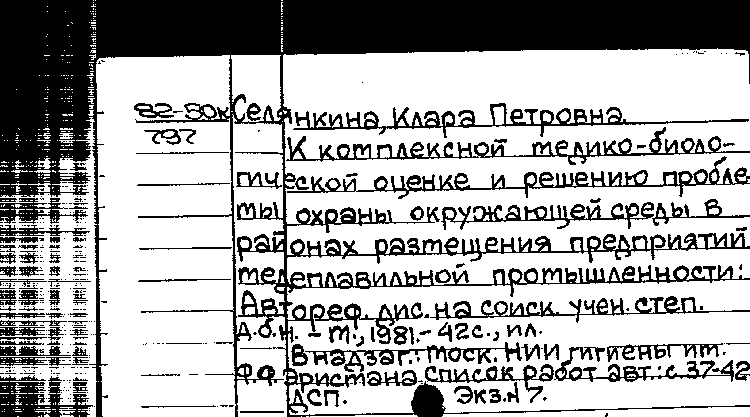 82-50к Селянкина, Клара Петровна.
797
К комплексной медико-биоло-
гической оценке и решению пробле
мы охраны окружающей среды в
районах размещения предприятий
медеплавильной промышленности:
Автореф. дис. на соиск. учен. степ.
д.б.н. - М., 1981. - 42 с., ил.
В надзаг.: Моск. НИИ гигиены им.
Ф.Ф. Эристана. Список работ авт.: с. 37-42
ДСП. Экз. № 7.